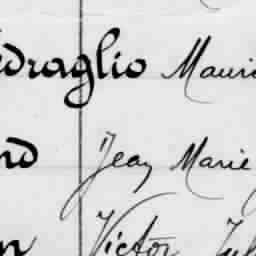 draglio Mauri
nd Jean Marie
n Victor Jul